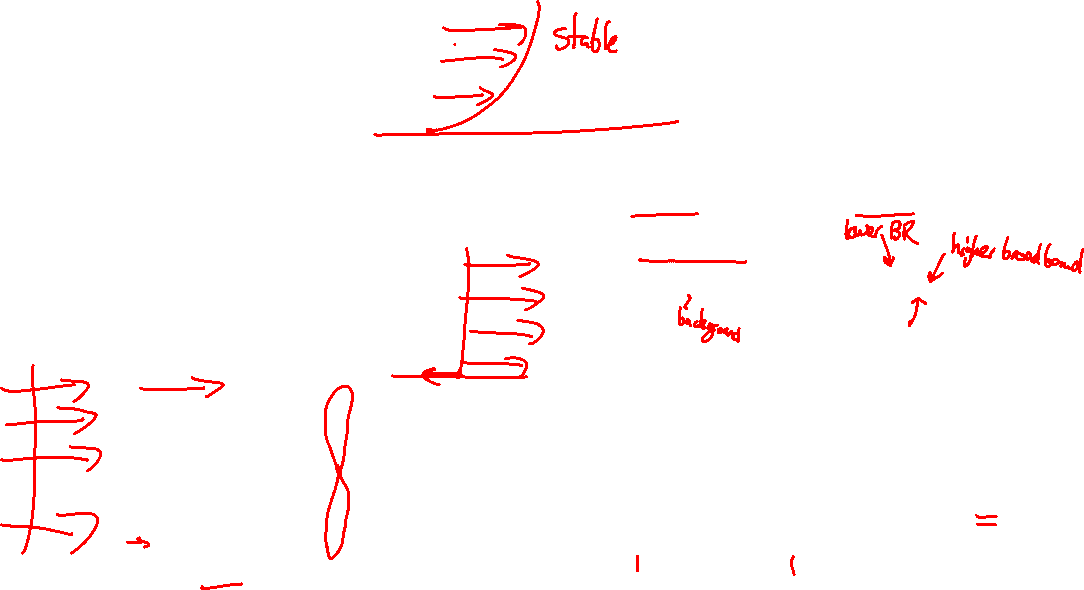 stable
lower BR
higher broadband
background